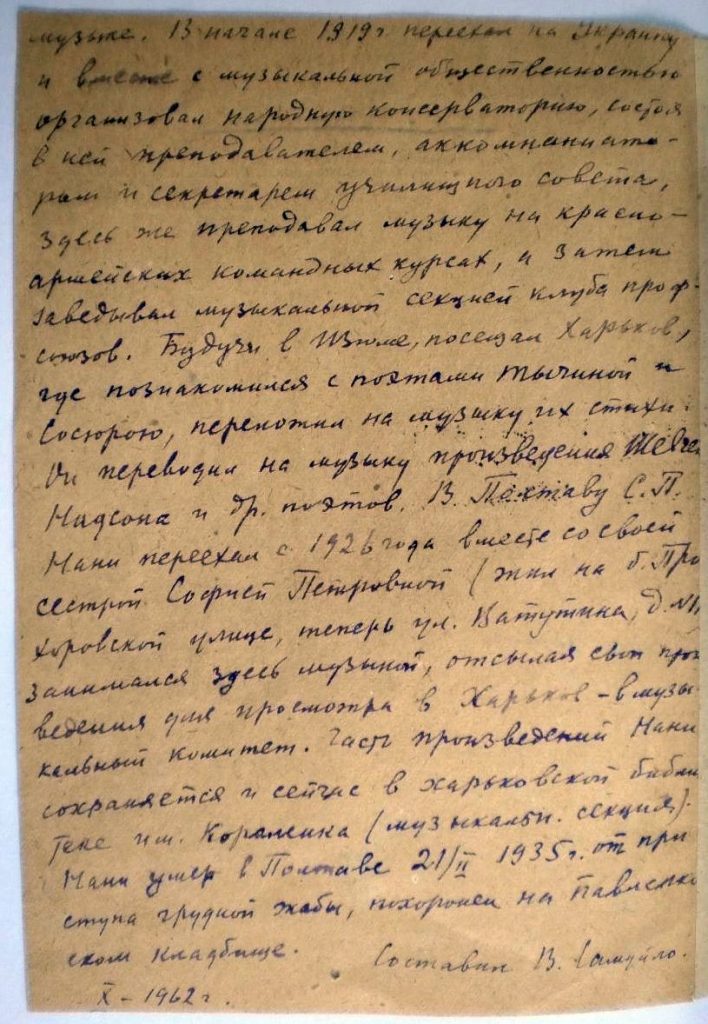 музыке. В начале 1919 г. переехал на Украину
и вместе с музыкальной общественностью
организовал народную консерваторию, состоя
в ней преподавателем, аккомпаниато-
ром и секретарем училищного совета,
здесь же преподавал музыку на красно-
армейских командных курсах, а затем
заведывал музыкальной секцией клуба проф-
союзов. Будучи в Изюме, посещал Харьков,
где познакомился с поэтами Тычиной и
Сосюрою, переложил на музыку их стихи.
Он переводил на музыку произведения Шевче
Надсона и др. поэтов. В Полтаву С. П.
Нани переехал с 1926 года вместе со своей
сестрой Софией Петровной (жил на б. Про
хоровской улице, теперь ул. Ватутина, д. №
Занимался здесь музыкой, отсылая свои прои
ведения для просмотра в Харьков - в музы
кальный комитет. Часть произведений Нани
сохраняется и сейчас в харьковской библи
теке им. Короленка (музыкальн. секция).
Нани умер в Полтаве 21/II 1935 г. от при
ступа грудной жабы, похоронен на Павленко
ском кладбище.
Составил В. Самуйло.
X - 1962 г.